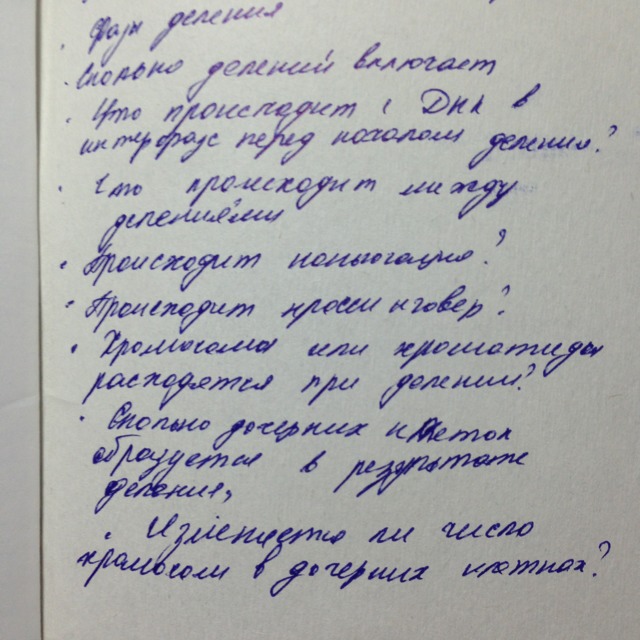 · Фазы деления
· Сколько делений включает
· Что происходит с ДНК в
интерфазе перед началом деления?
· Что происходит между
делениями
· Происходит коньюгация?
· Происходит кроссинговер?
· Хромосомы или хроматиды
расходятся при делении?
· Сколько дочерних клеток
образуется в результате
деления,
· Изменяется ли число
хромосом в дочерних клетках?